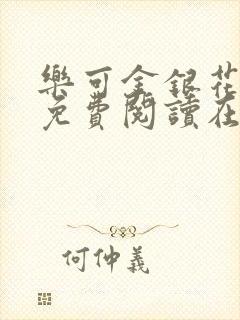 樂可金銀花
免費閱讀在
何仲義